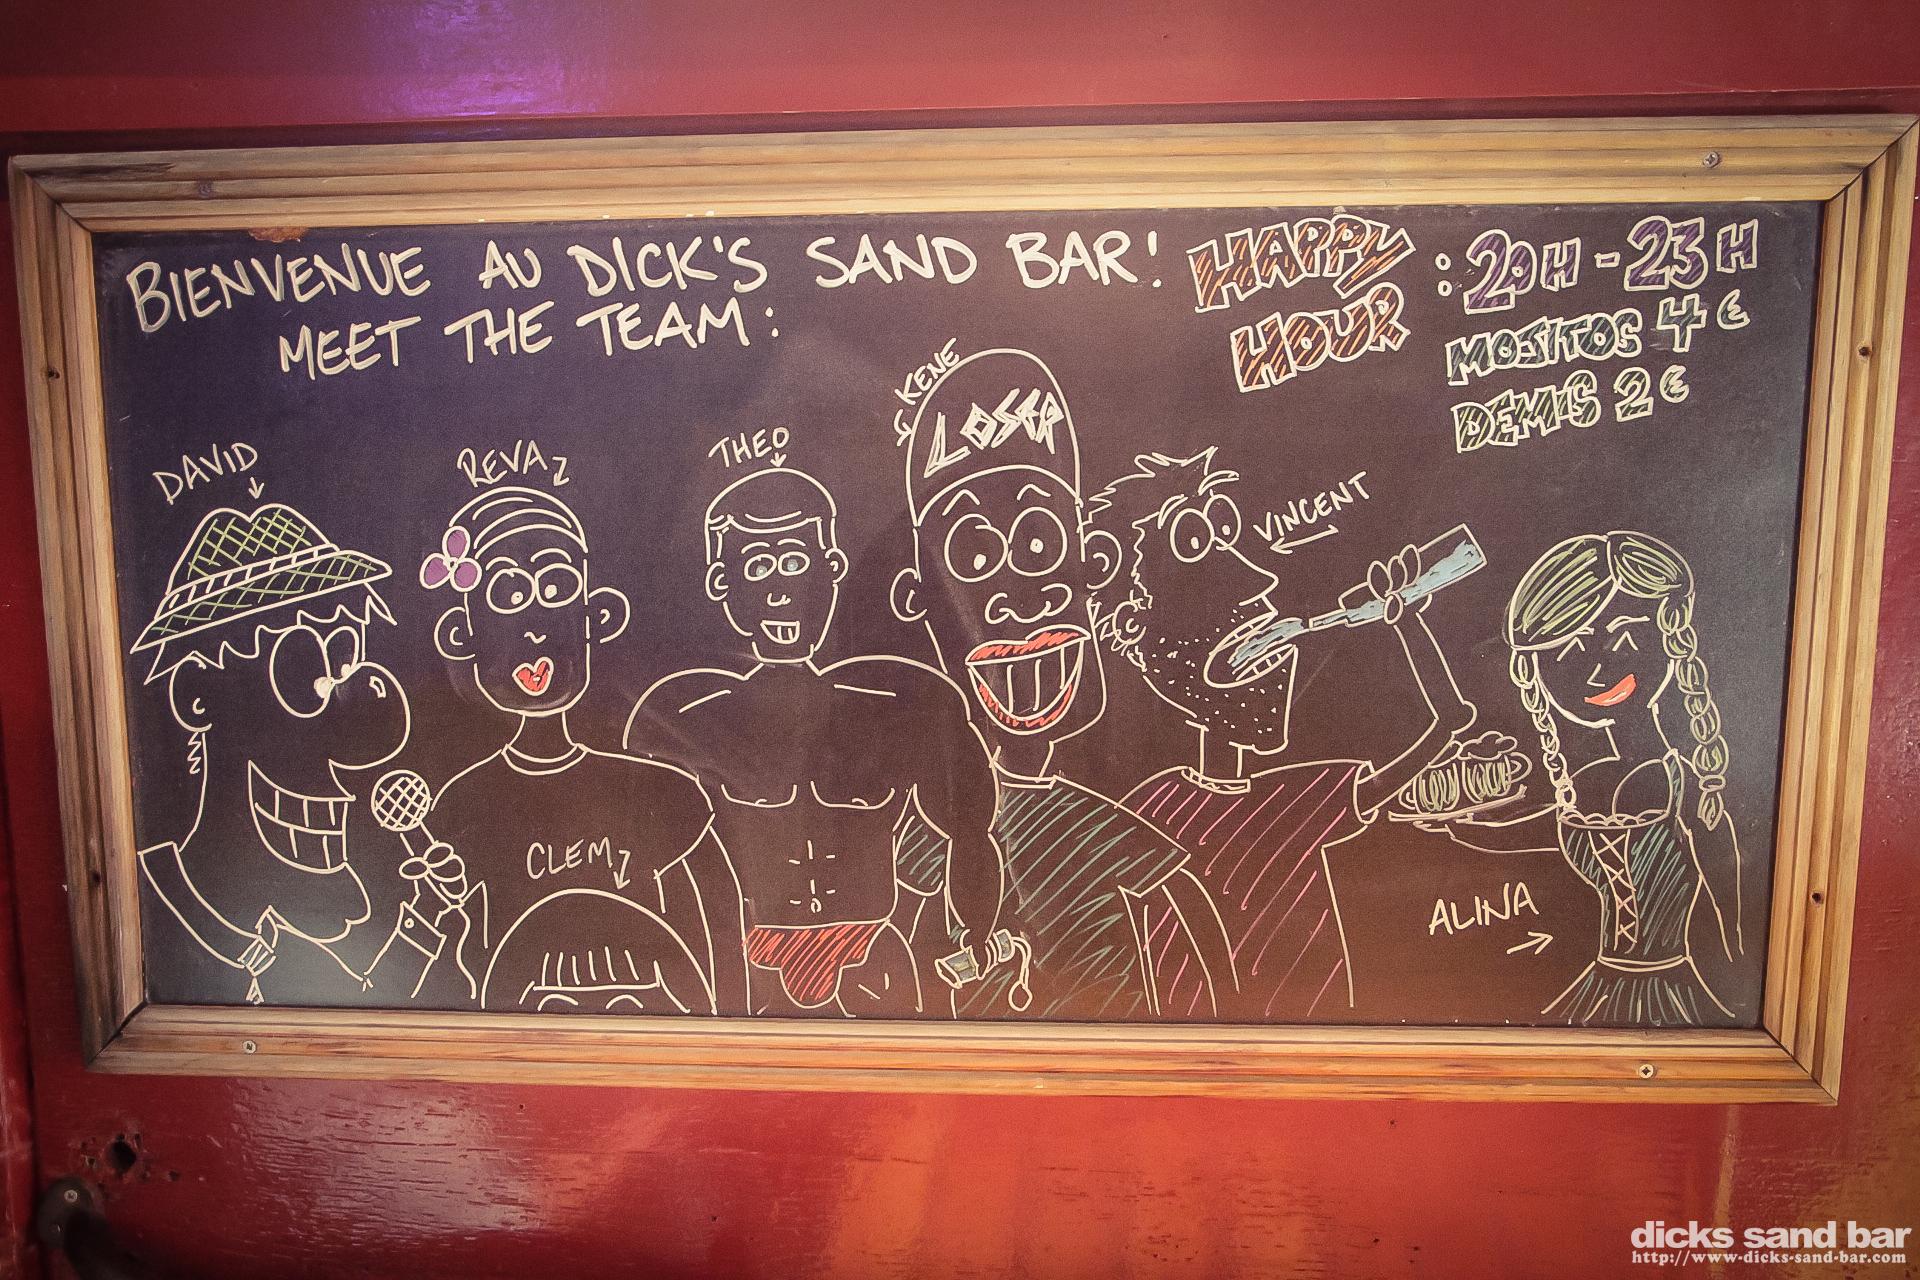 BIENVENUE AU DICK'S SAND BAR!
MEET THE TEAM:
HAPPY HOUR : 20H - 23H
MOJITOS 4€
DEMIS 2€
DAVID
REVA
THEO
KENE
LOSER
VINCENT
CLEM
ALINA
dicks sand bar
http://www-dicks-sand-bar.com